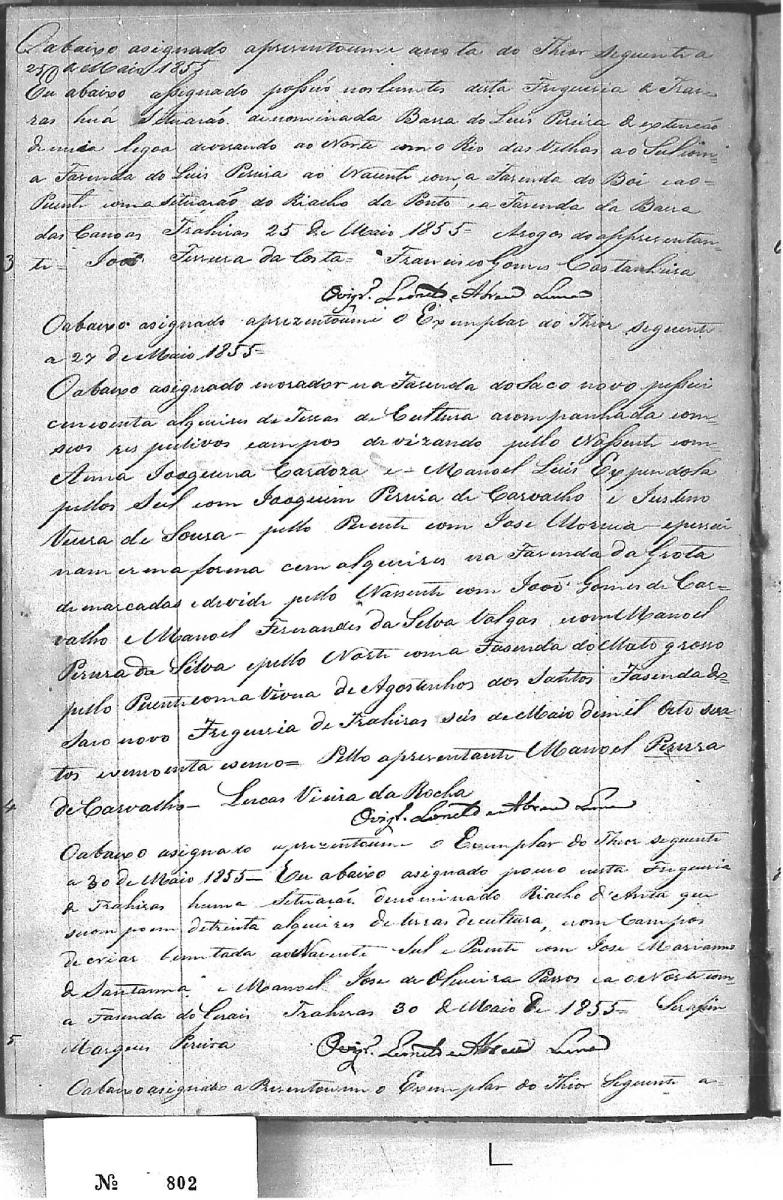 O abaixo asignado apresentoume a nota do Thior seguente a
25 de Maio 1855
Eu abaixo asignado possuo nos lemites desta Freguesia de Trai-
ras huã Situação denominada Barra do Luis Pereira de extenção
de meia legoa devezando ao Norte com o Rio das Velhas ao Sul com
a Fazenda do Luis Pereira ao Nacente com, a Fazenda do Boi e ao=
Puente com a situacão do Riacho da Ponte e a Fazenda da Barra
das Canoas Trahiras 25 de Maio 1855= Arogo do appresentan-
3 te= João Ferreira da Costa= Francisco Gomes Castanheira
O vigr.º
O abaixo asignado aprezentoume o Exemplar do Thior seguente
a 27 de Maio 1855=
O abaixo asignado morador na Fazenda do Saco novo possui
cincoenta alqueires de Terras de Cultura acompanhada com
seos respectivos campos devizando pello Nassente com
Anna Joaquina Cardoza e Manoel Luis Expindola
pellos Sul com Joaquim Pereira de Carvalho e Justino
Vieira de Sousa- pello Puente com Jose Moreira- e possui
na mesma forma cem alqueires na Fazenda da Grota
demarcadas e devide pello Nassente com João Gomes de Car-
valho e Manoel Fernandes da Silva Valgas e com Manoel
Pereira da Silva e pello Norte com a Fasenda do Mato grosso
pello Puente com a Viuva de Agostinho dos Santos Fasenda do
Saco novo Freguesia de Trahiras seis de Maio de mil Oito sen-
tos e cincoenta e cinco= Pello apresentante Manoel Pereira
4 de Carvalho- Lucas Vieira da Rocha
O vigr.º
O abaixo asignado aprezentoume o Exemplar do Thior seguente
a 30 de Maio 1855- Eu abaixo asignado possuo nesta Freguesia
de Trahiras huma Situação denominado Riacho d'Anta que
se compoem de trinta alqueires de terras de cultura, e com Campos
de criar lemitada ao Nacente Sul e Puente com Jose Marianno
de Santanna e Manoel Jose de Oliveira Passos e ao Norte com
a Fazenda do Gerais Trahiras 30 de Maio de 1855= Serafim
5 Marques Pereira O vigr.º
O abaixo asignado a Presentoume o Exemplar do Thior Seguente a-
Nº 802
L